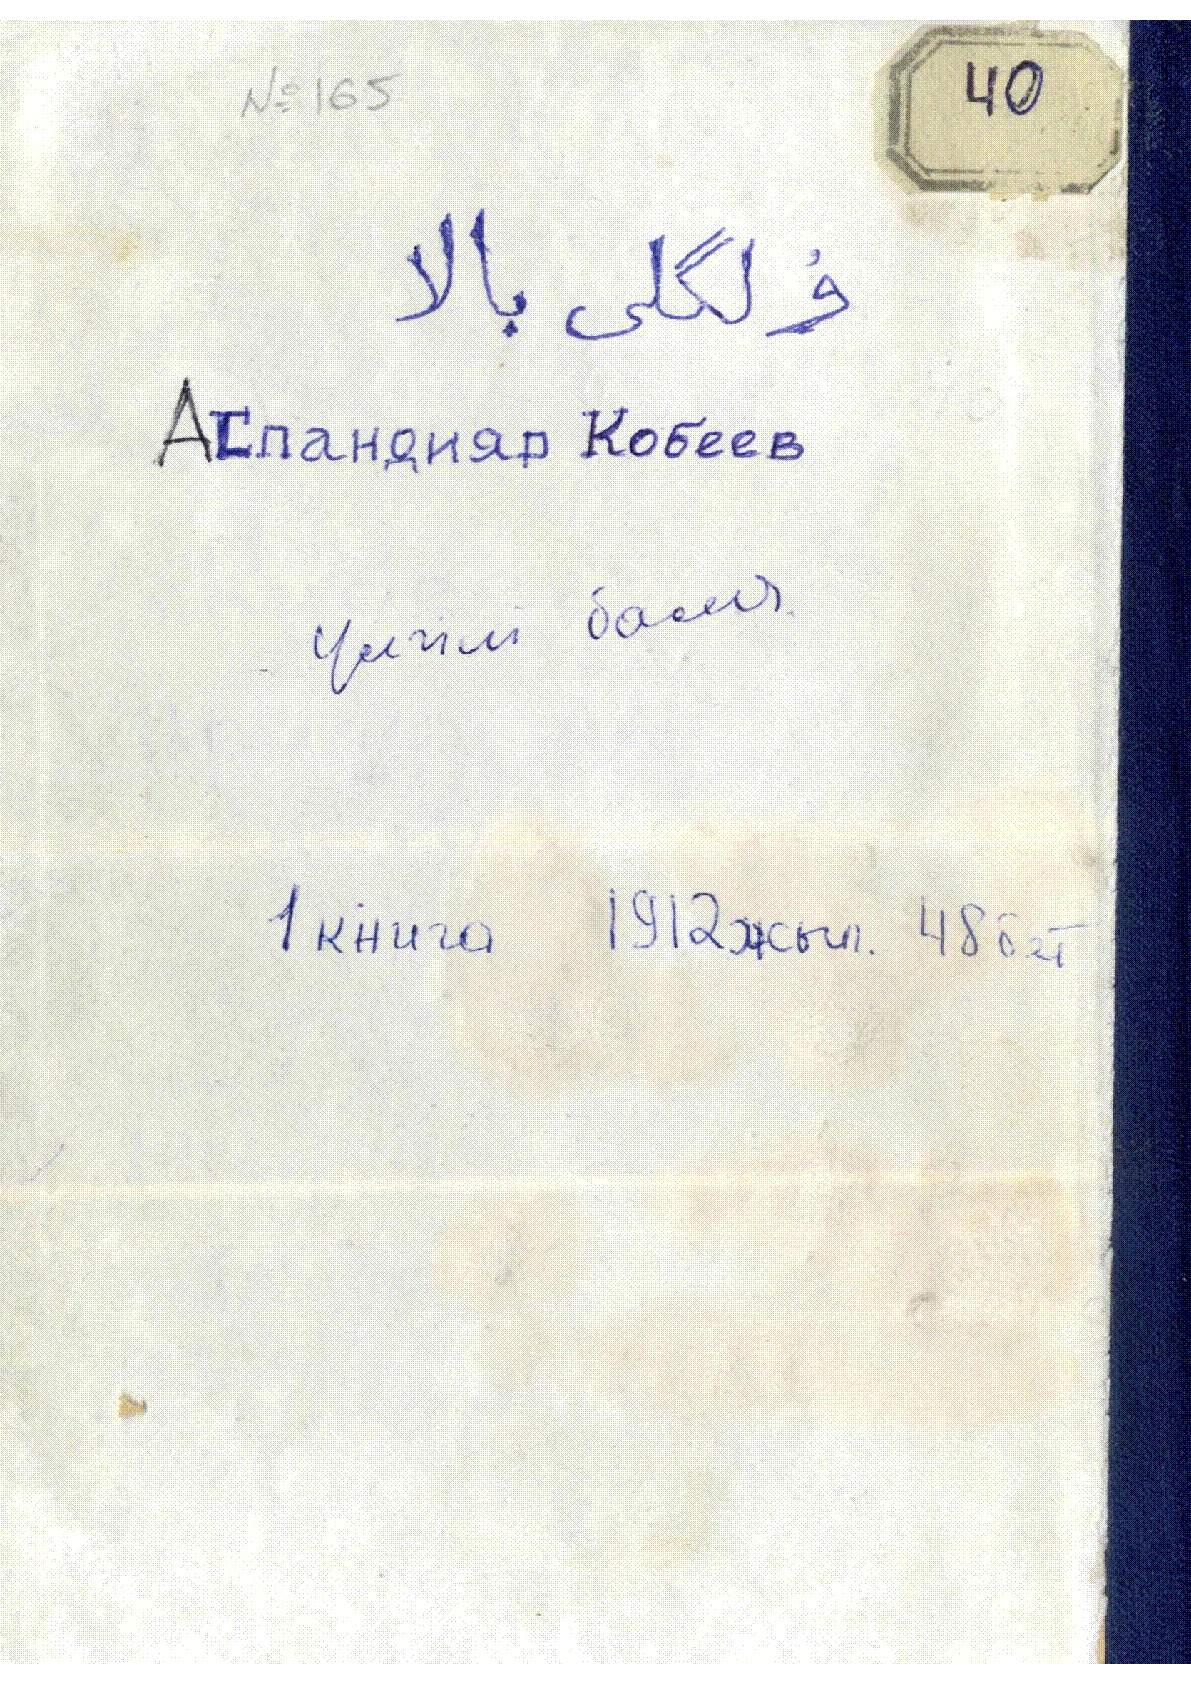 №165
40
ۇلگلى بالا
Аспандияр Кобеев
Үлгілі бала
1 книга 1912 жыл. 48 бет